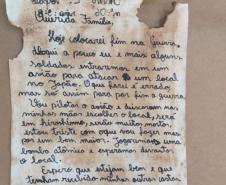 Querida Família,
Hoje colocarei fim na Guerra,
daqui a pouco eu e mais alguns
soldados entraremos em um
avião para atacar um local
no Japão. O que farei é errado,
mas só assim para pôr fim a guerra.
Vou pilotar o avião e deixaram nas
minhas mãos escolher o local, será
em Hiroshima, serão muitos mortos,
estou triste com o que vou fazer mas
por um bem maior. Jogaremos uma
bomba atômica e
o local.
Espero que estejam bem e que
tenham recebido minhas outras cartas